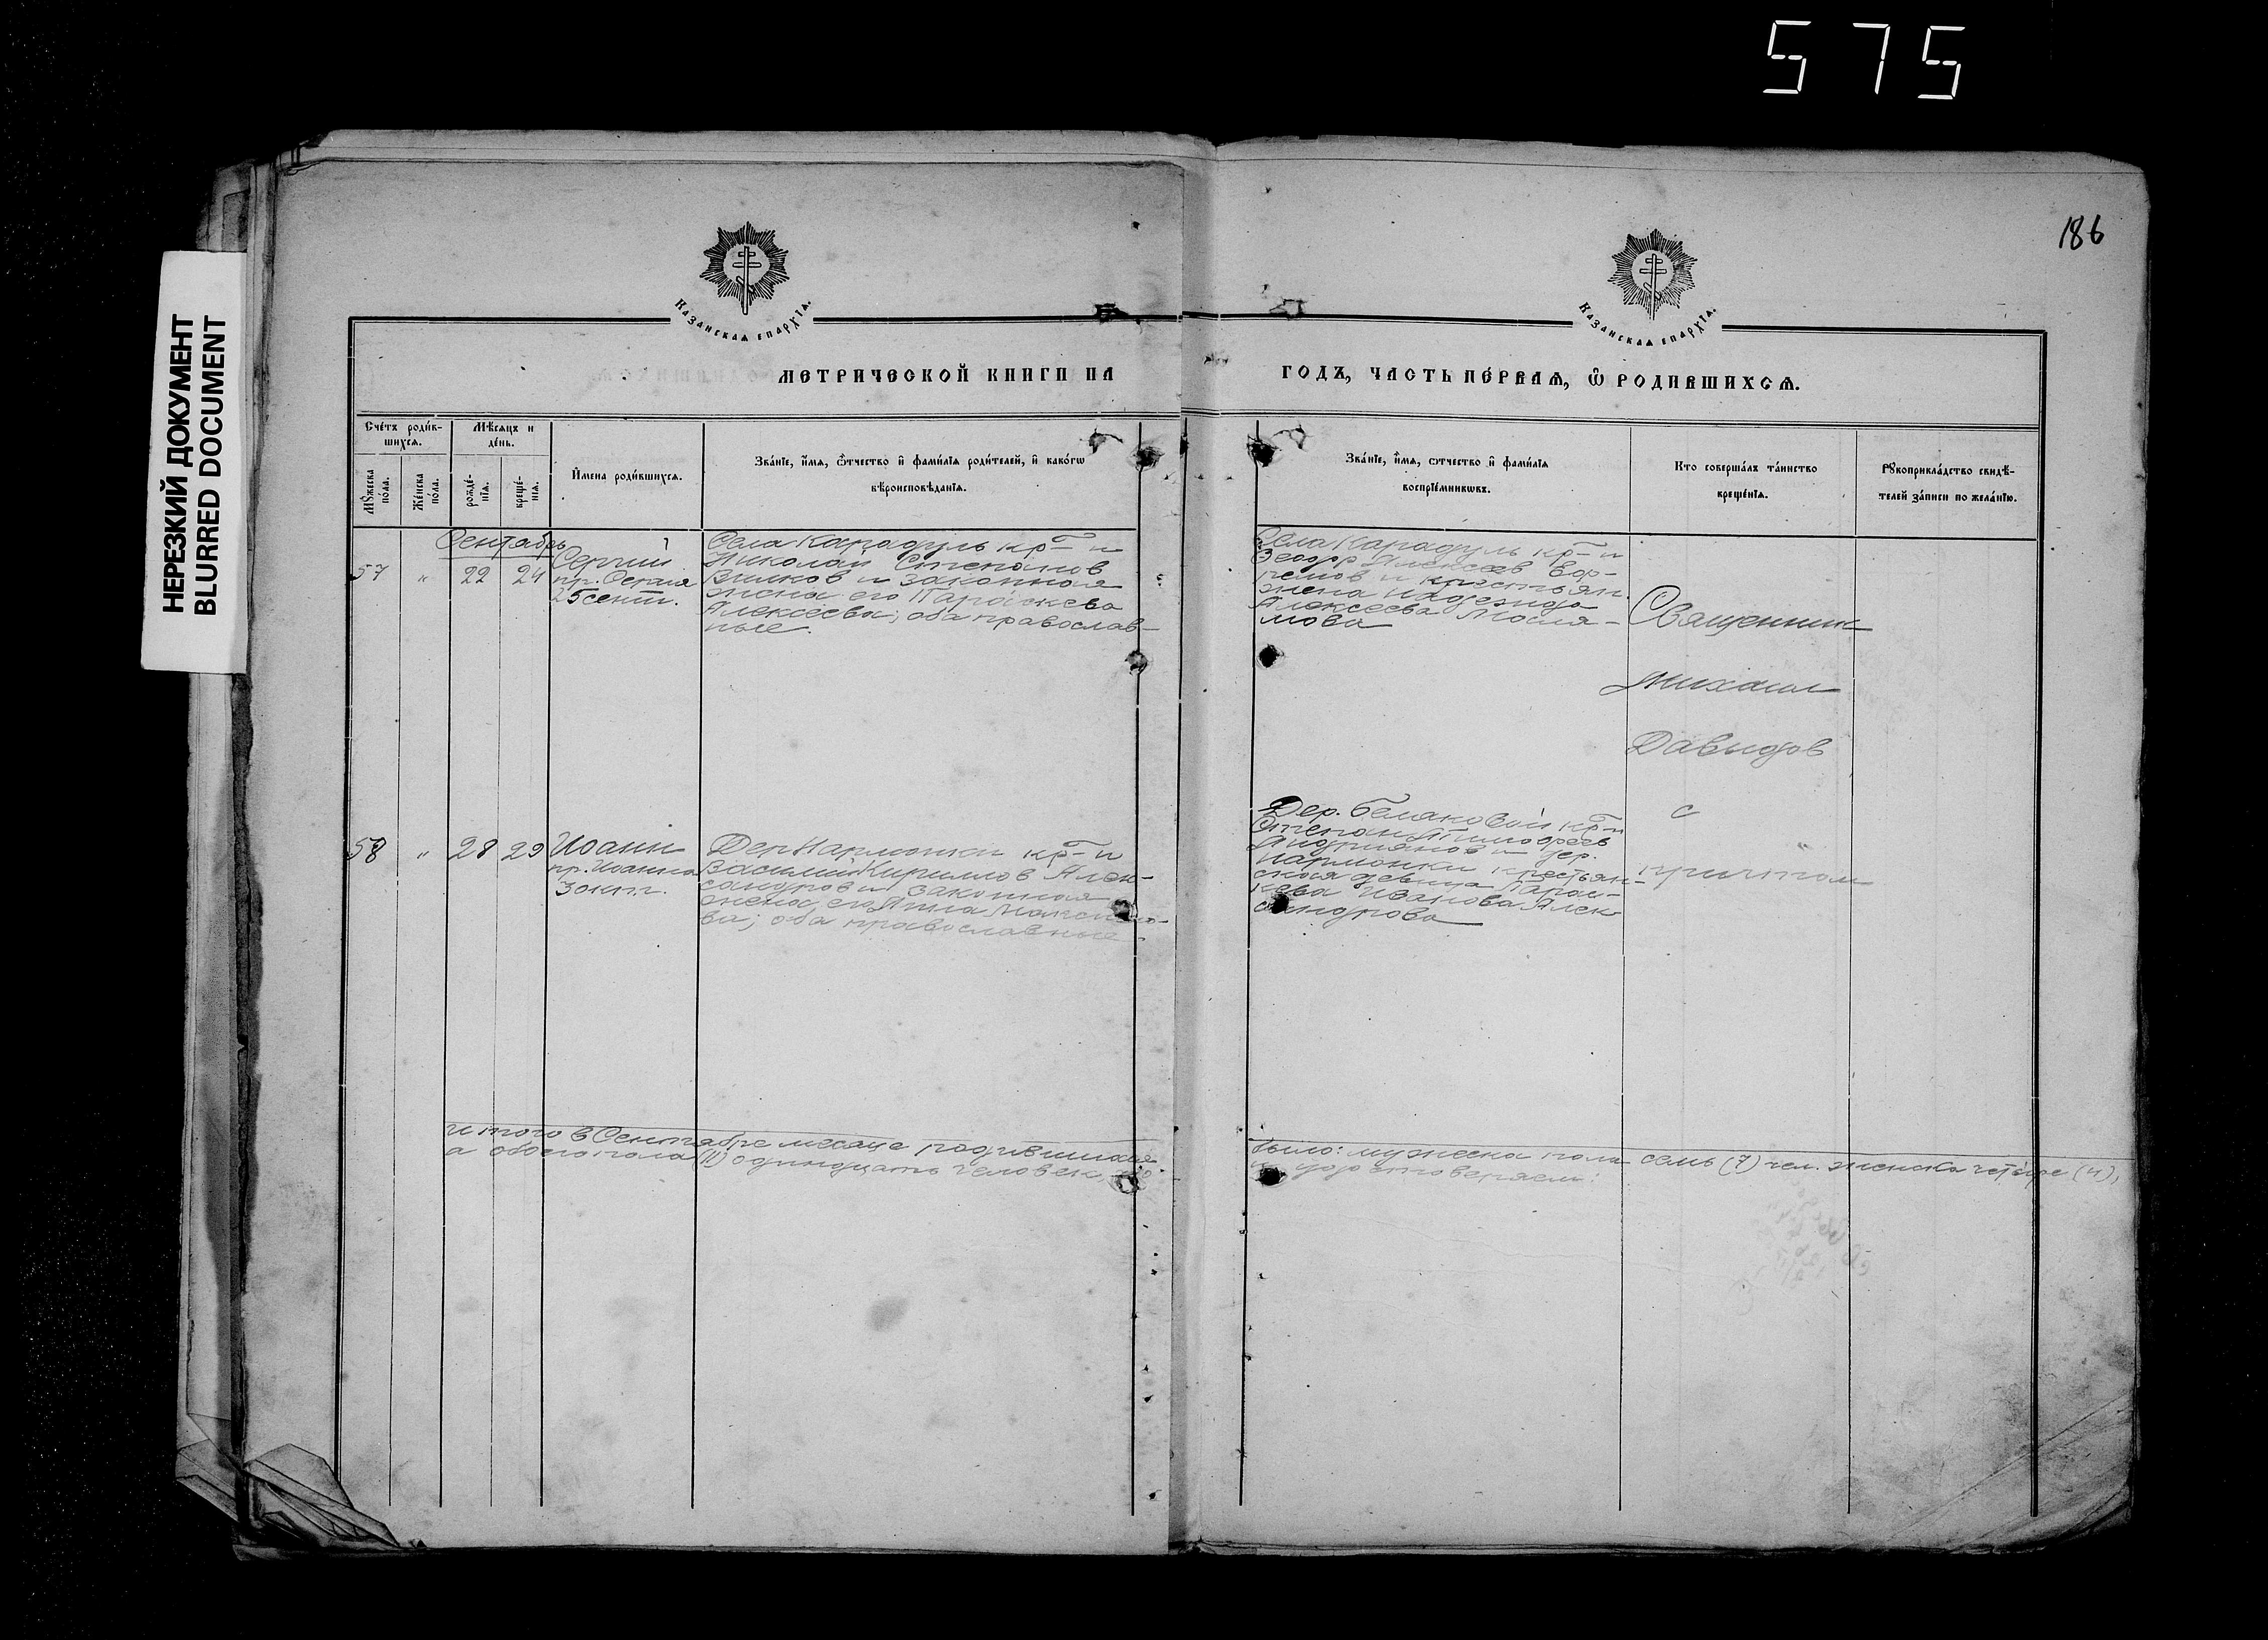 575
186
НЕРЕЗКИЙ ДОКУМЕНТ
BLURRED DOCUMENT
Казанская епархїѧ.
Казанская епархїѧ.
МЕТРИЧЕСКОЙ КНИГИ НА
ГОДЪ, ЧАСТЬ ПЕ́РВАѦ, Ѡ РОДИВШИХСѦ.
Сче́тъ роди́в-
шихсѧ.
Мѣ́сѧцъ и
де́нь.
Мꙋ́жеска
по́ла.
Же́нска
по́ла.
рожде́-
нїѧ.
креще́-
нїѧ.
И҆мена роди́вшихсѧ.
Зва́нїе, и҆́мѧ, ѻ҆́тчество и҆ фами́лїѧ роди́телей, и҆ како́гѡ
вѣроисповѣ́данїѧ.
Зва́нїе, и҆́мѧ, ѻ҆тчество и҆ фами́лїѧ
воспрїе́мникѡвъ.
Кто соверша́лъ та́инство
креще́нїѧ.
Рꙋкоприкла́дство свидѣ́-
телей за́писи по жела́нїю.
Сентябрь
57 " 22 24
Сергий
пр. Сергия
25 сент.
Села Карадуль кр-н
Николай Степанов
Вилков и законная
жена его Параскева
Алексеева; оба православ-
ные.
Села Карадуль кр-н
Феодор Алексеев
и крестьян.
жена Надежда
Алексеева
мова
Священник
Михаил
Давыдов
с
причтом
58 " 28 29
Иоанн
пр. Иоанна
30 сент.
Дер. Нармонки кр-н
Василий Кириллов Алек-
сандров и законная
жена его Анна Максимо-
ва; оба православные.
Дер. кр-н
Степан Тимофеев
Андриянов и дер.
Нармонки крестьян-
ская девица Парас-
кева Иванова Алек-
сандрова
итого в Сентябре месяце родившихся
было: мужеска пола семь (7) чел. женска четыре (4),
а обоего пола (11) одинадцать человек,
удостоверяем: